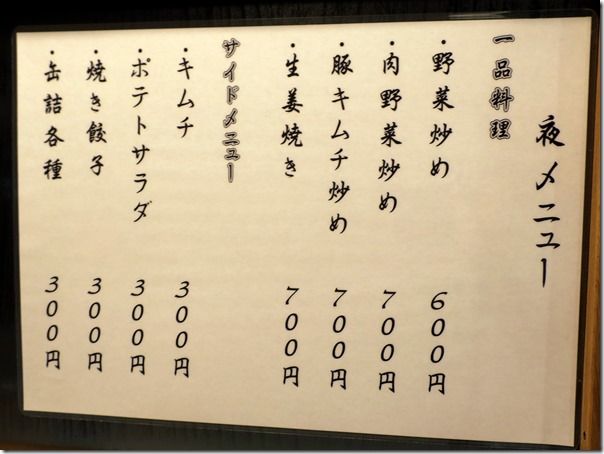 夜メニュー
一品料理
・野菜炒め 600円
・肉野菜炒め 700円
・豚キムチ炒め 700円
・生姜焼き 700円
サイドメニュー
・キムチ 300円
・ポテトサラダ 300円
・焼き餃子 300円
・缶詰各種 300円